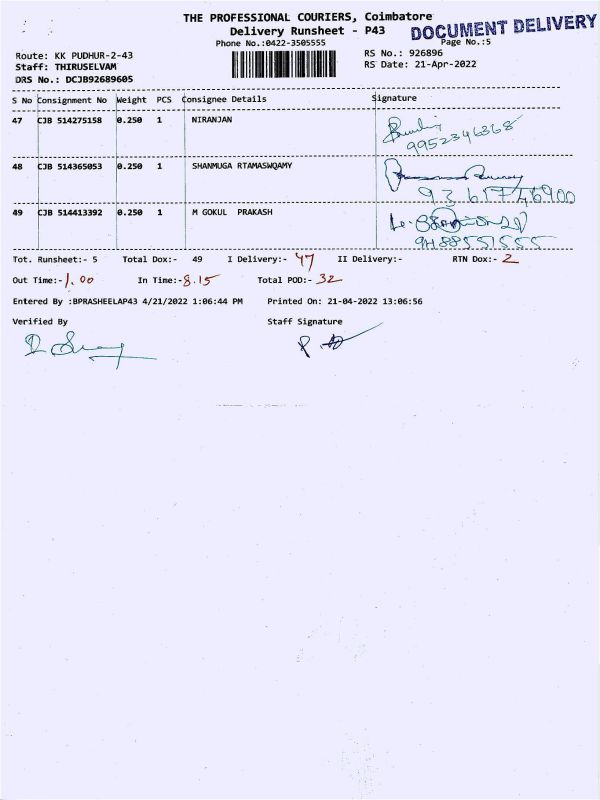 THE PROFESSIONAL COURIERS, Coimbatore
Delivery Runsheet - P43
DOCUMENT DELIVERY
Phone No.:0422-3505555
Page No.:5
Route: KK PUDHUR-2-43
RS No.: 926896
Staff: THIRUSELVAM
RS Date: 21-Apr-2022
DRS No.: DCJB92689605
S No Consignment No Weight PCS Consignee Details Signature
47 CJB 514275158 0.250 1 NIRANJAN
9952346368
48 CJB 514365053 0.250 1 SHANMUGA RTAMASWQAMY
49 CJB 514413392 0.250 1 M GOKUL PRAKASH
Tot. Runsheet:- 5 Total Dox:- 49 I Delivery:- 47 II Delivery:- RTN Dox:- 2
Out Time:- 1.00 In Time:- 8.15 Total POD:- 32
Entered By :BPRASHEELAP43 4/21/2022 1:06:44 PM Printed On: 21-04-2022 13:06:56
Verified By Staff Signature